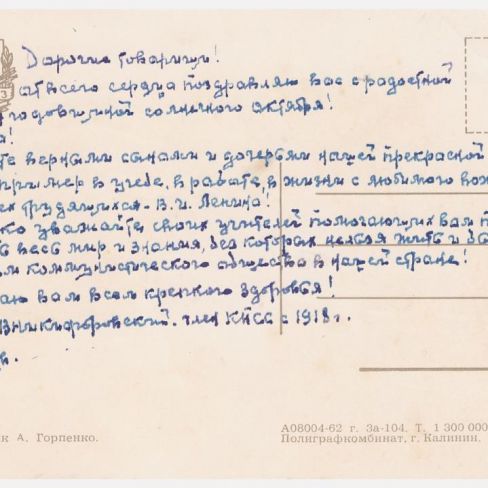 Дорогие товарищи!
от всего сердца поздравляю вас с радостной
годовщиной солнечного октября!
а!
те верными сынами и дочерьми нашей прекрасной
пример в учебе, в работе, в жизни с любимого вож
ех трудящихся - В. И. Ленина!
ко уважайте своих учителей помогающих вам п
ь весь мир и знания, без которых нельзя жить и
ом коммунистического общества в нашей стране!
аю вам всем крепкого здоровья!
Никифоровский. член КПСС с 1918 г.
в.
3
к А. Горпенко.
А08004-62 г. За-104. Т. 1 300 000
Полиграфкомбинат, г. Калинин,